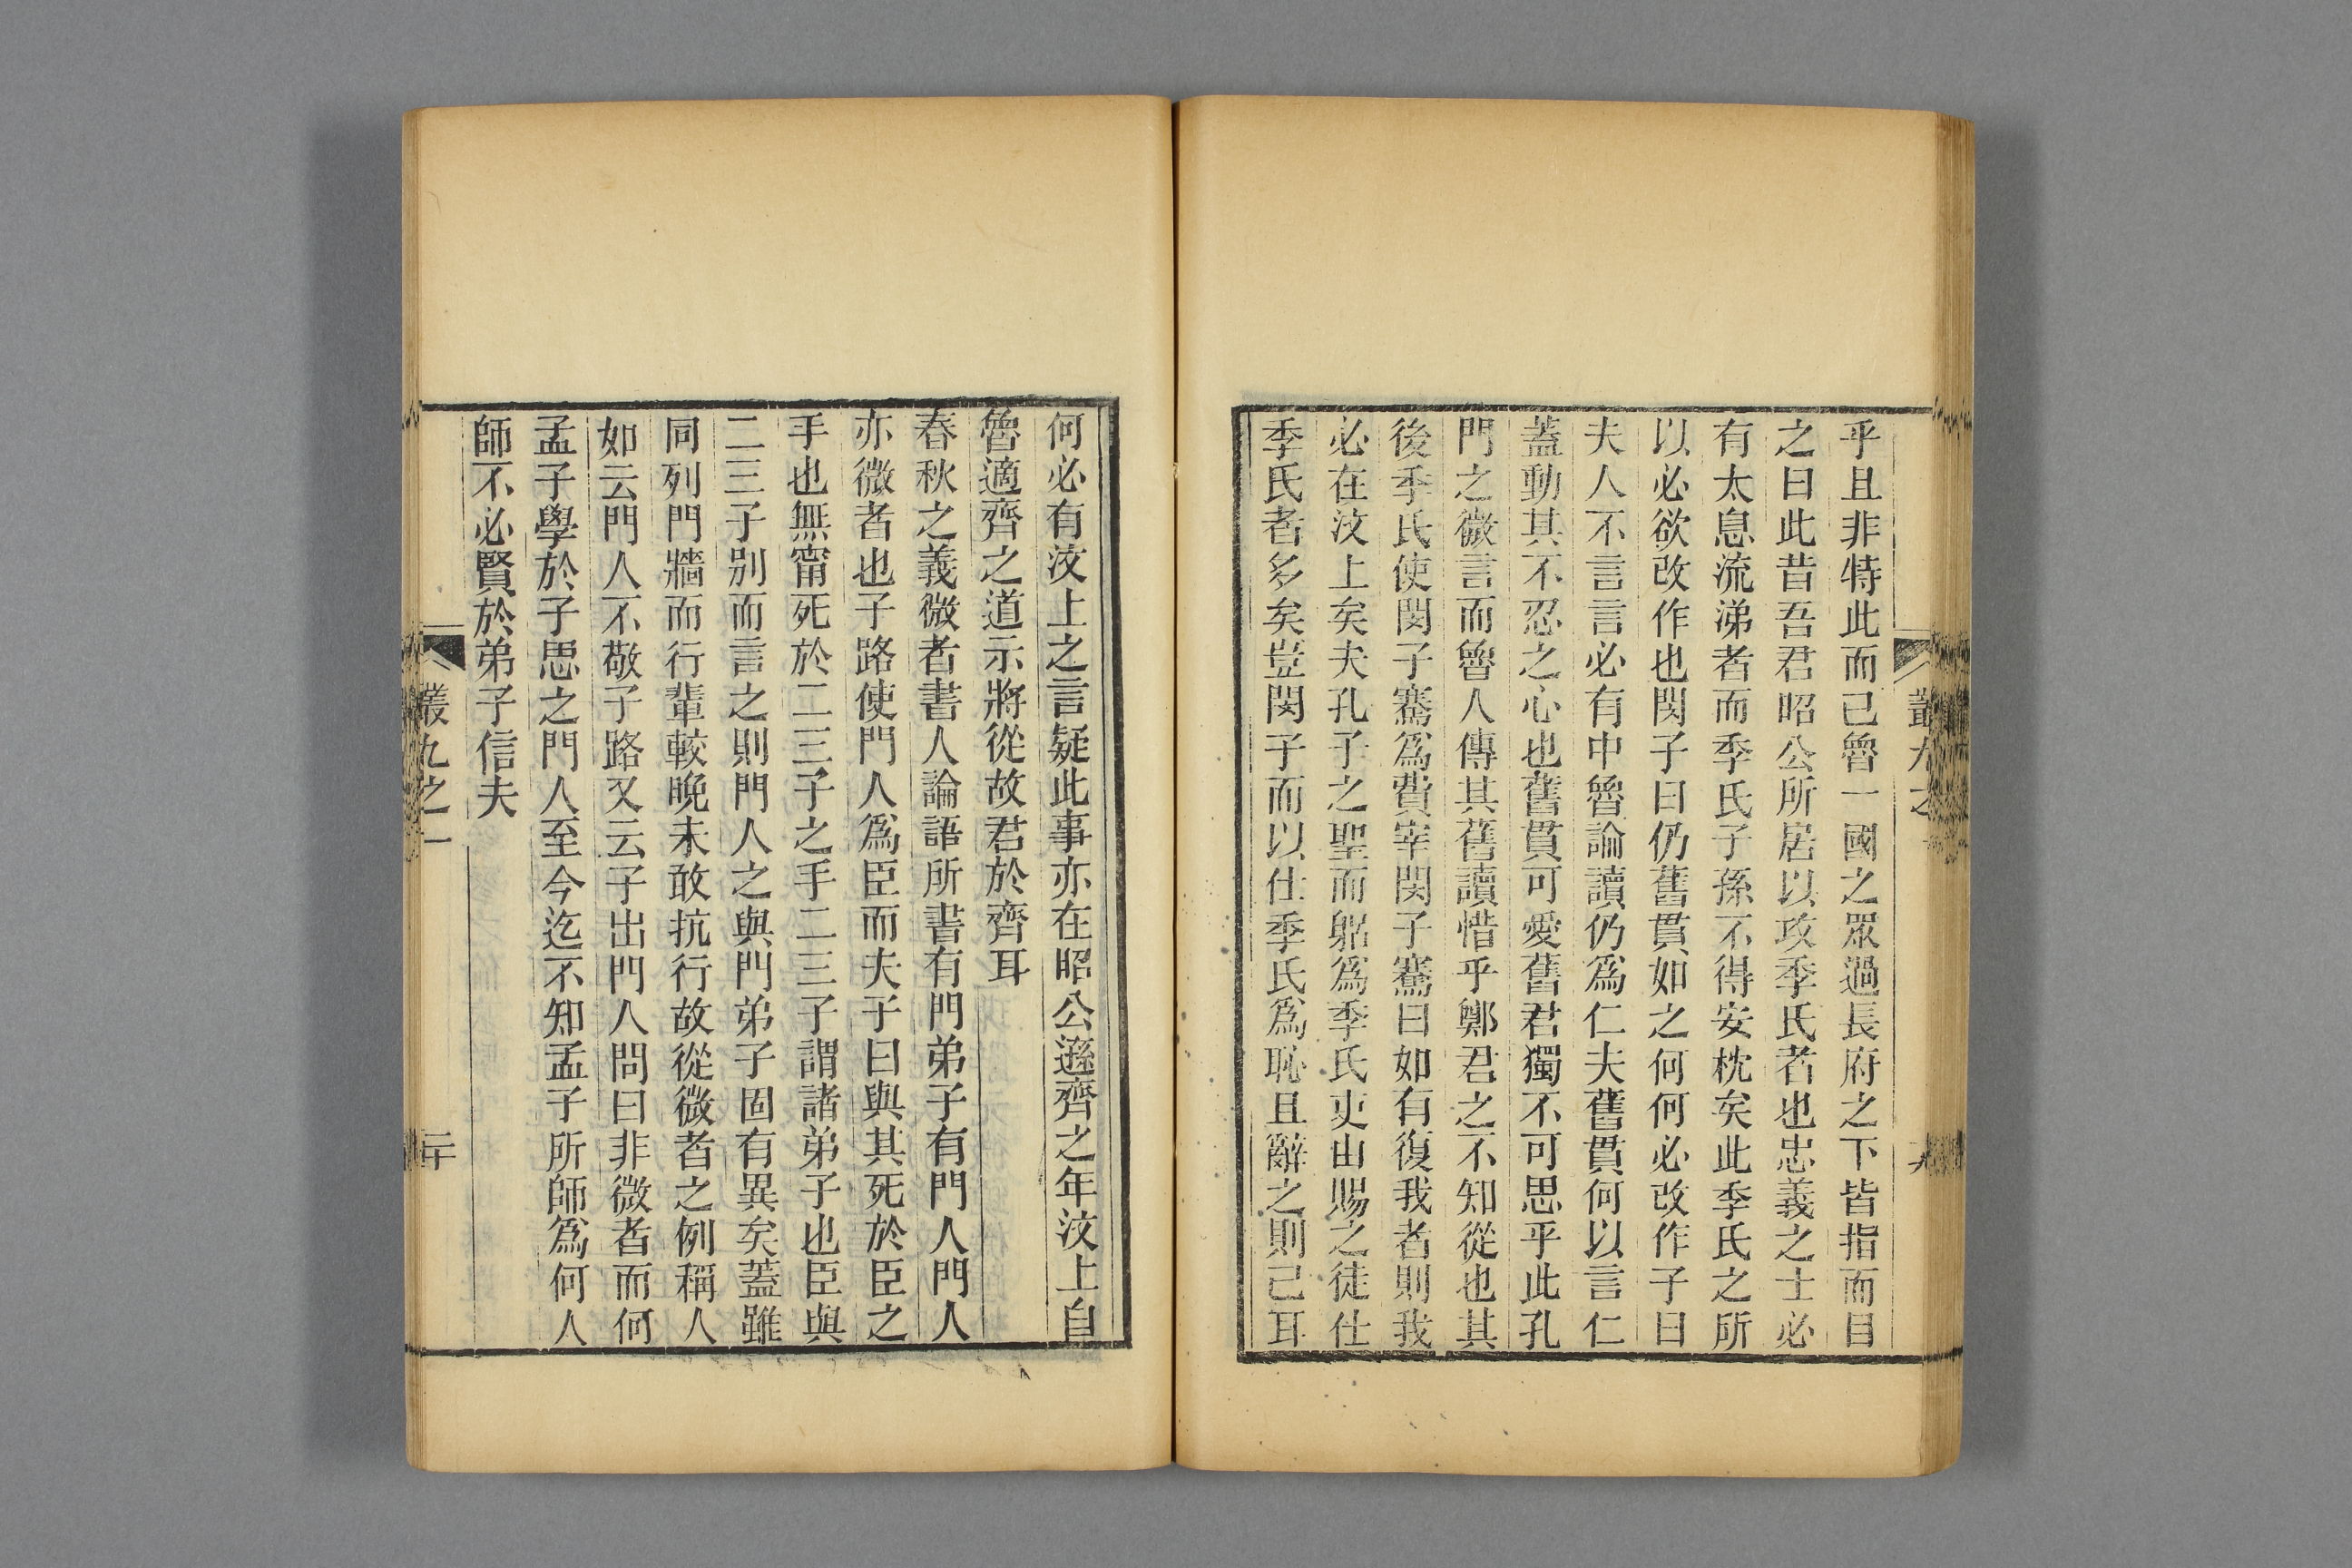 叢九之
九
乎且非特此而已魯一國之眾過長府之下皆指而目
之曰此昔吾君昭公所居以攻季氏者也忠義之士必
有太息流涕者而季氏子孫不得安枕矣此季氏之所
以必欲改作也閔子曰仍舊貫如之何何必改作子曰
夫人不言言必有中魯論讀仍爲仁夫舊貫何以言仁
蓋動其不忍之心也舊貫可愛舊君獨不可思乎此孔
門之微言而魯人傳其舊讀惜乎鄭君之不知從也其
後季氏使閔子騫爲費宰閔子騫曰如有復我者則我
必在汶上矣夫孔子之聖而躬爲季氏吏由賜之徒仕
季氏者多矣豈閔子而以仕季氏爲恥且辭之則已耳
何必有汶上之言疑此事亦在昭公遜齊之年汶上自
魯適齊之道示將從故君於齊耳
春秋之義微者書人論語所書有門弟子有門人門人
亦微者也子路使門人爲臣而夫子曰與其死於臣之
手也無甯死於二三子之手二三子謂諸弟子也臣與
二三子別而言之則門人之與門弟子固有異矣蓋雖
同列門牆而行輩較晚未敢抗行故從微者之例稱人
如云門人不敬子路又云子出門人問曰非微者而何
孟子學於子思之門人至今迄不知孟子所師爲何人
師不必賢於弟子信夫
叢九之一
二十